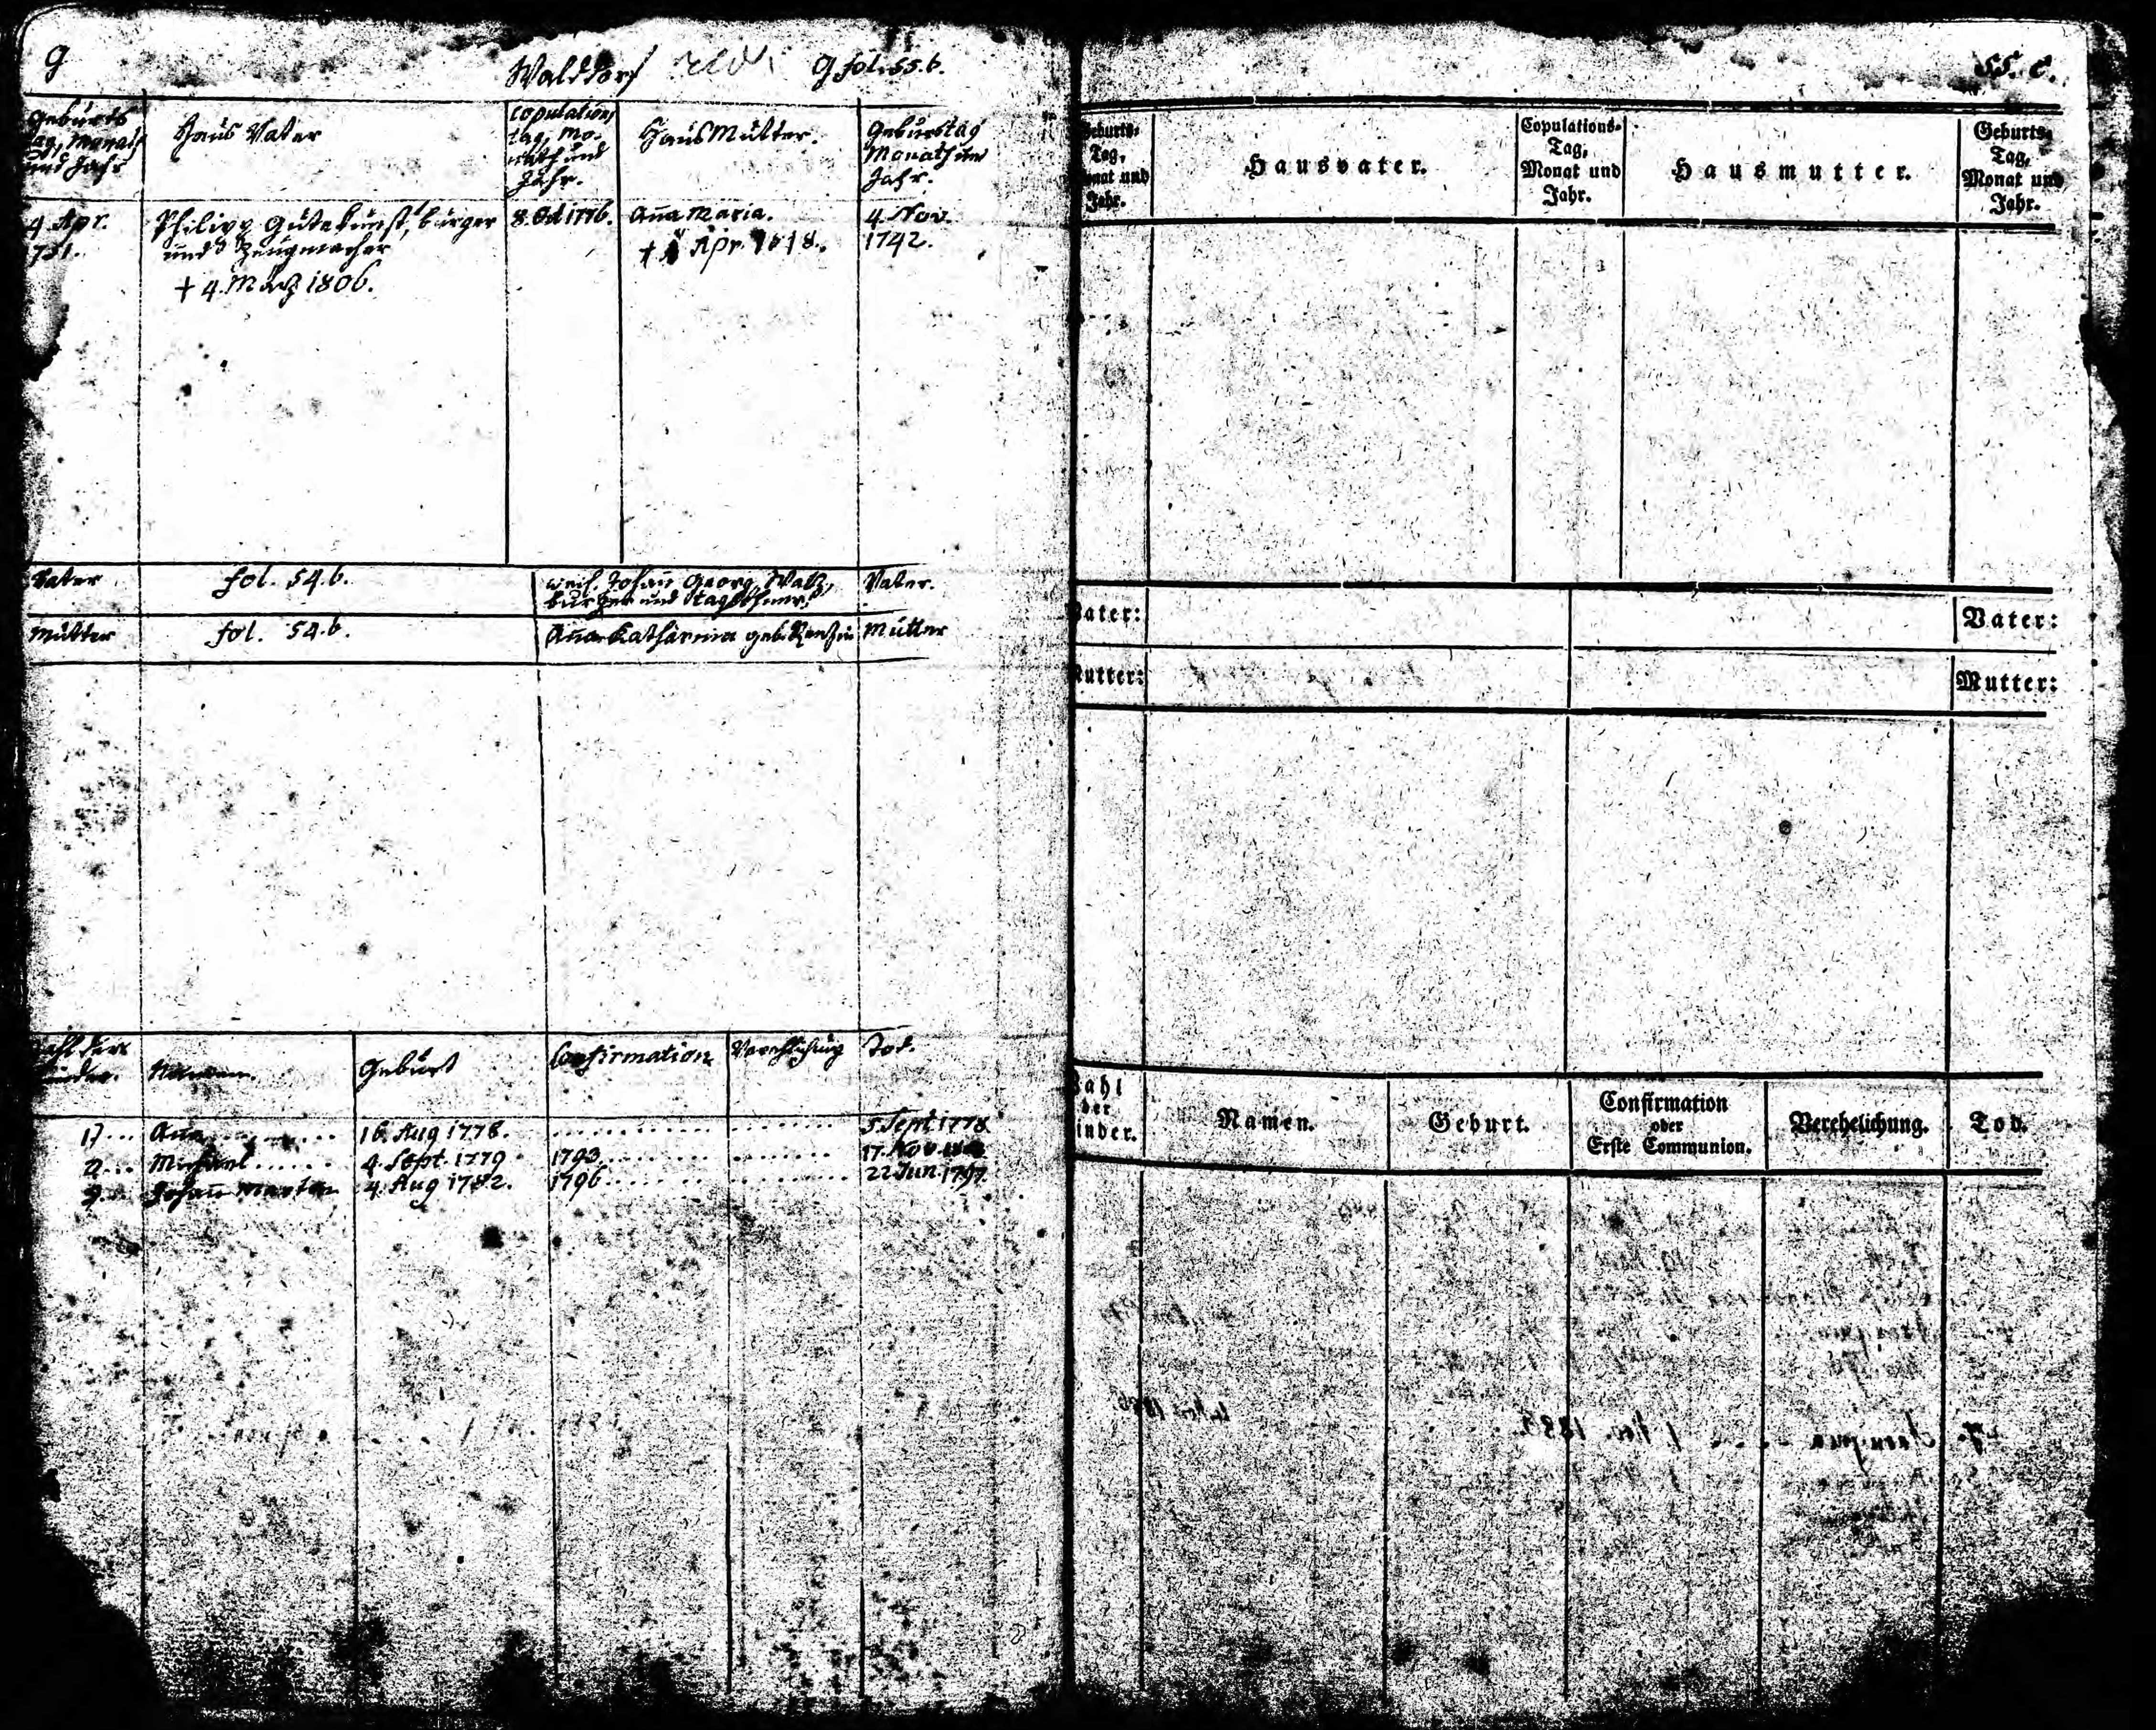 g
Walddorf
g fol. 55.b.
Geburts
tag, Monath
und Jahr
Haus Vater
Copulations
tag, Mo-
nath und
Jahr.
Haus Mutter.
Geburtstag
Monath und
Jahr.
4 Apr.
Philipp Gutekunst, burger
und Zeugmacher
+ 4. März 1806.
8. Oct 1776.
Aña Maria.
Apr. 1818.
4. Nov.
1742.
Vater
fol. 54.b.
weil. Johañ Georg Walz,
burger und
Vater.
Mutter
fol. 54.b.
Aña Katharina geb.
Mutter
Namen.
Geburt
Confirmation
Verehlichung
Tod.
1)... Aña ........ 16. Aug 1778. ........ ........ 5 Sept 1778
2... Michael ...... 4. Sept. 1779 1793 ........ ........ 17. Nov.
3... Johañ Martin 4. Aug 1782. 1796 ........ ........ 22 Jun. 1797.
55. c.
Geburts-
Tag,
Monat und
Jahr.
Hausvater.
Copulations-
Tag,
Monat und
Jahr.
Hausmutter.
Geburts-
Tag,
Monat und
Jahr.
Vater:
Vater:
Mutter:
Mutter:
Zahl
der
Kinder.
Namen.
Geburt.
Confirmation
oder
Erste Communion.
Verehelichung.
Tod.